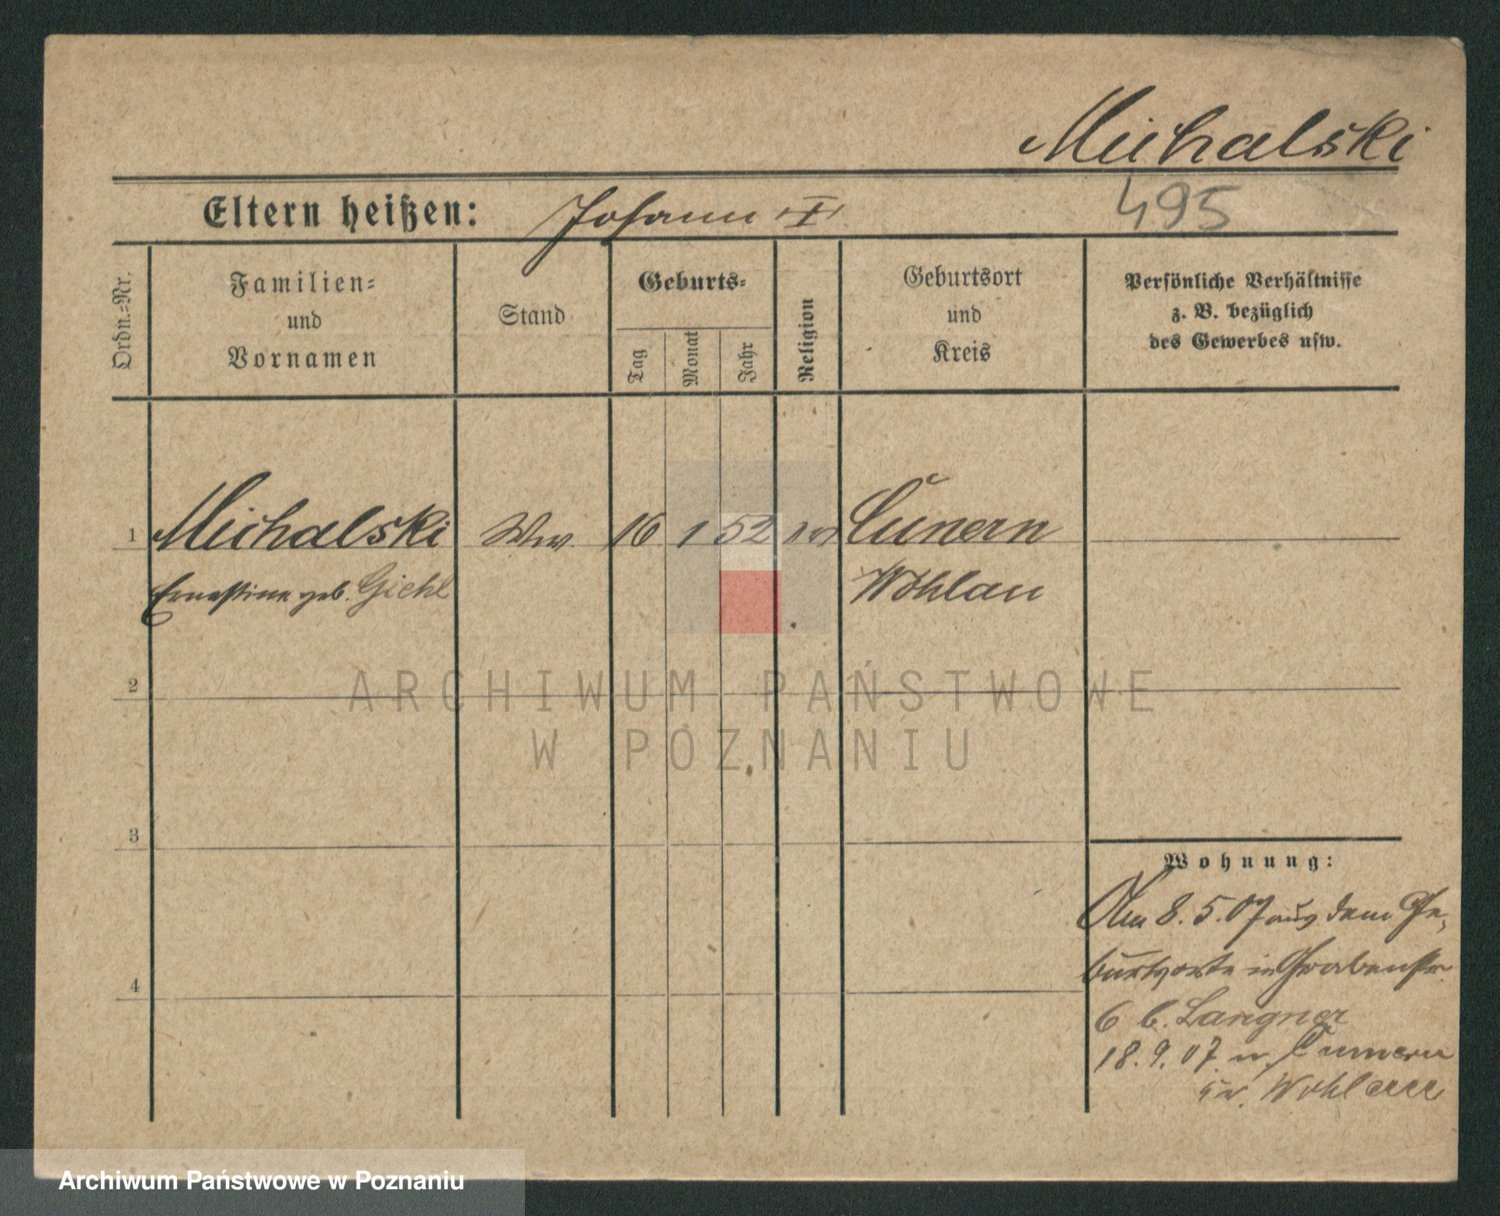 Michalski
495
Eltern heißen: Johann
Ordn.-Nr.
Familien-
und
Vornamen
Stand
Geburts-
Tag
Monat
Jahr
Religion
Geburtsort
und
Kreis
Persönliche Verhältnisse
z. B. bezüglich
des Gewerbes usw.
1 Michalski Ww. 16 1 52 Cunern
Ernestine geb. Giehl Wohlau
2
ARCHIWUM PAŃSTWOWE
W POZNANIU
3
Wohnung:
Am 8.5.07 aus dem Ge-
burtsorte in Grabenstr.
4
6 b. Langner
18.9.07 n. Cunern
Wohlau
Archiwum Państwowe w Poznaniu